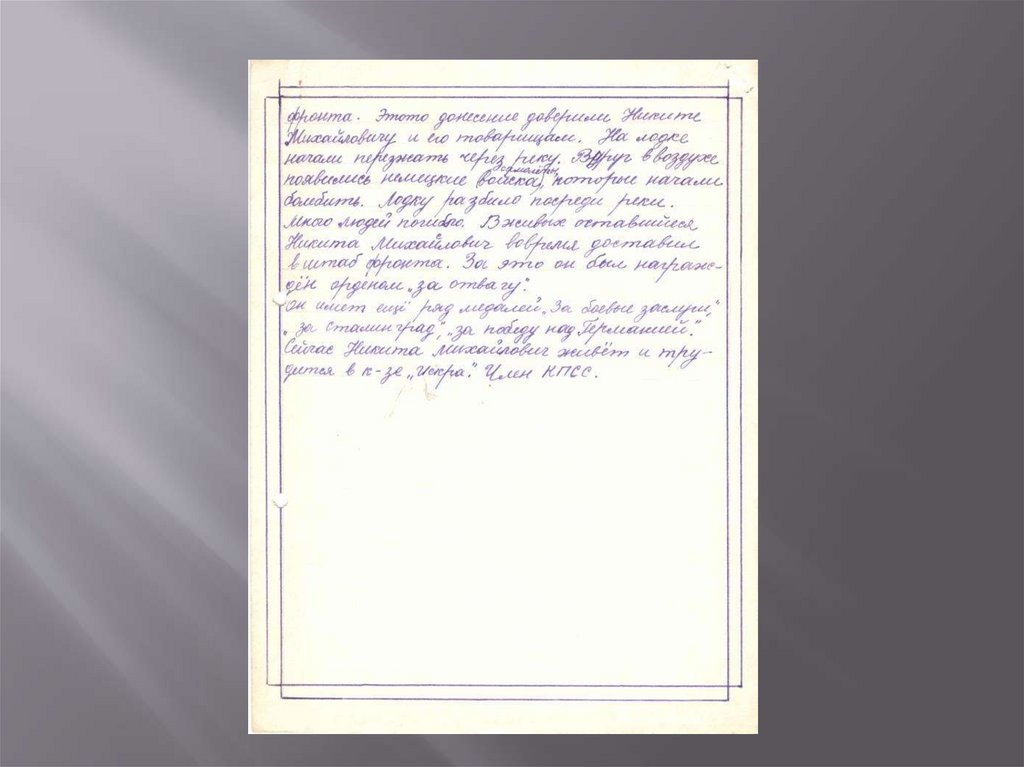 фронта. Этото донесение доверили Никите
Михайловичу и его товарищам. На лодке
начали перезжать через реку. Вдруг в воздухе
самолёты
появились немецкие (войска), которые начали
бомбить. Лодку разбило посреди реки.
Много людей погибло. В живых оставшийеся
Никита Михайлович вовремя доставил
в штаб фронта. За это он был награж-
дён орденом „за отвагу".
Он имет ещё ряд медалей „За боевые заслуги",
„за сталинград", „за победу над Германией".
Сейчас Никита Михайлович живёт и тру-
дится в к-зе „Искра". Член КПСС.